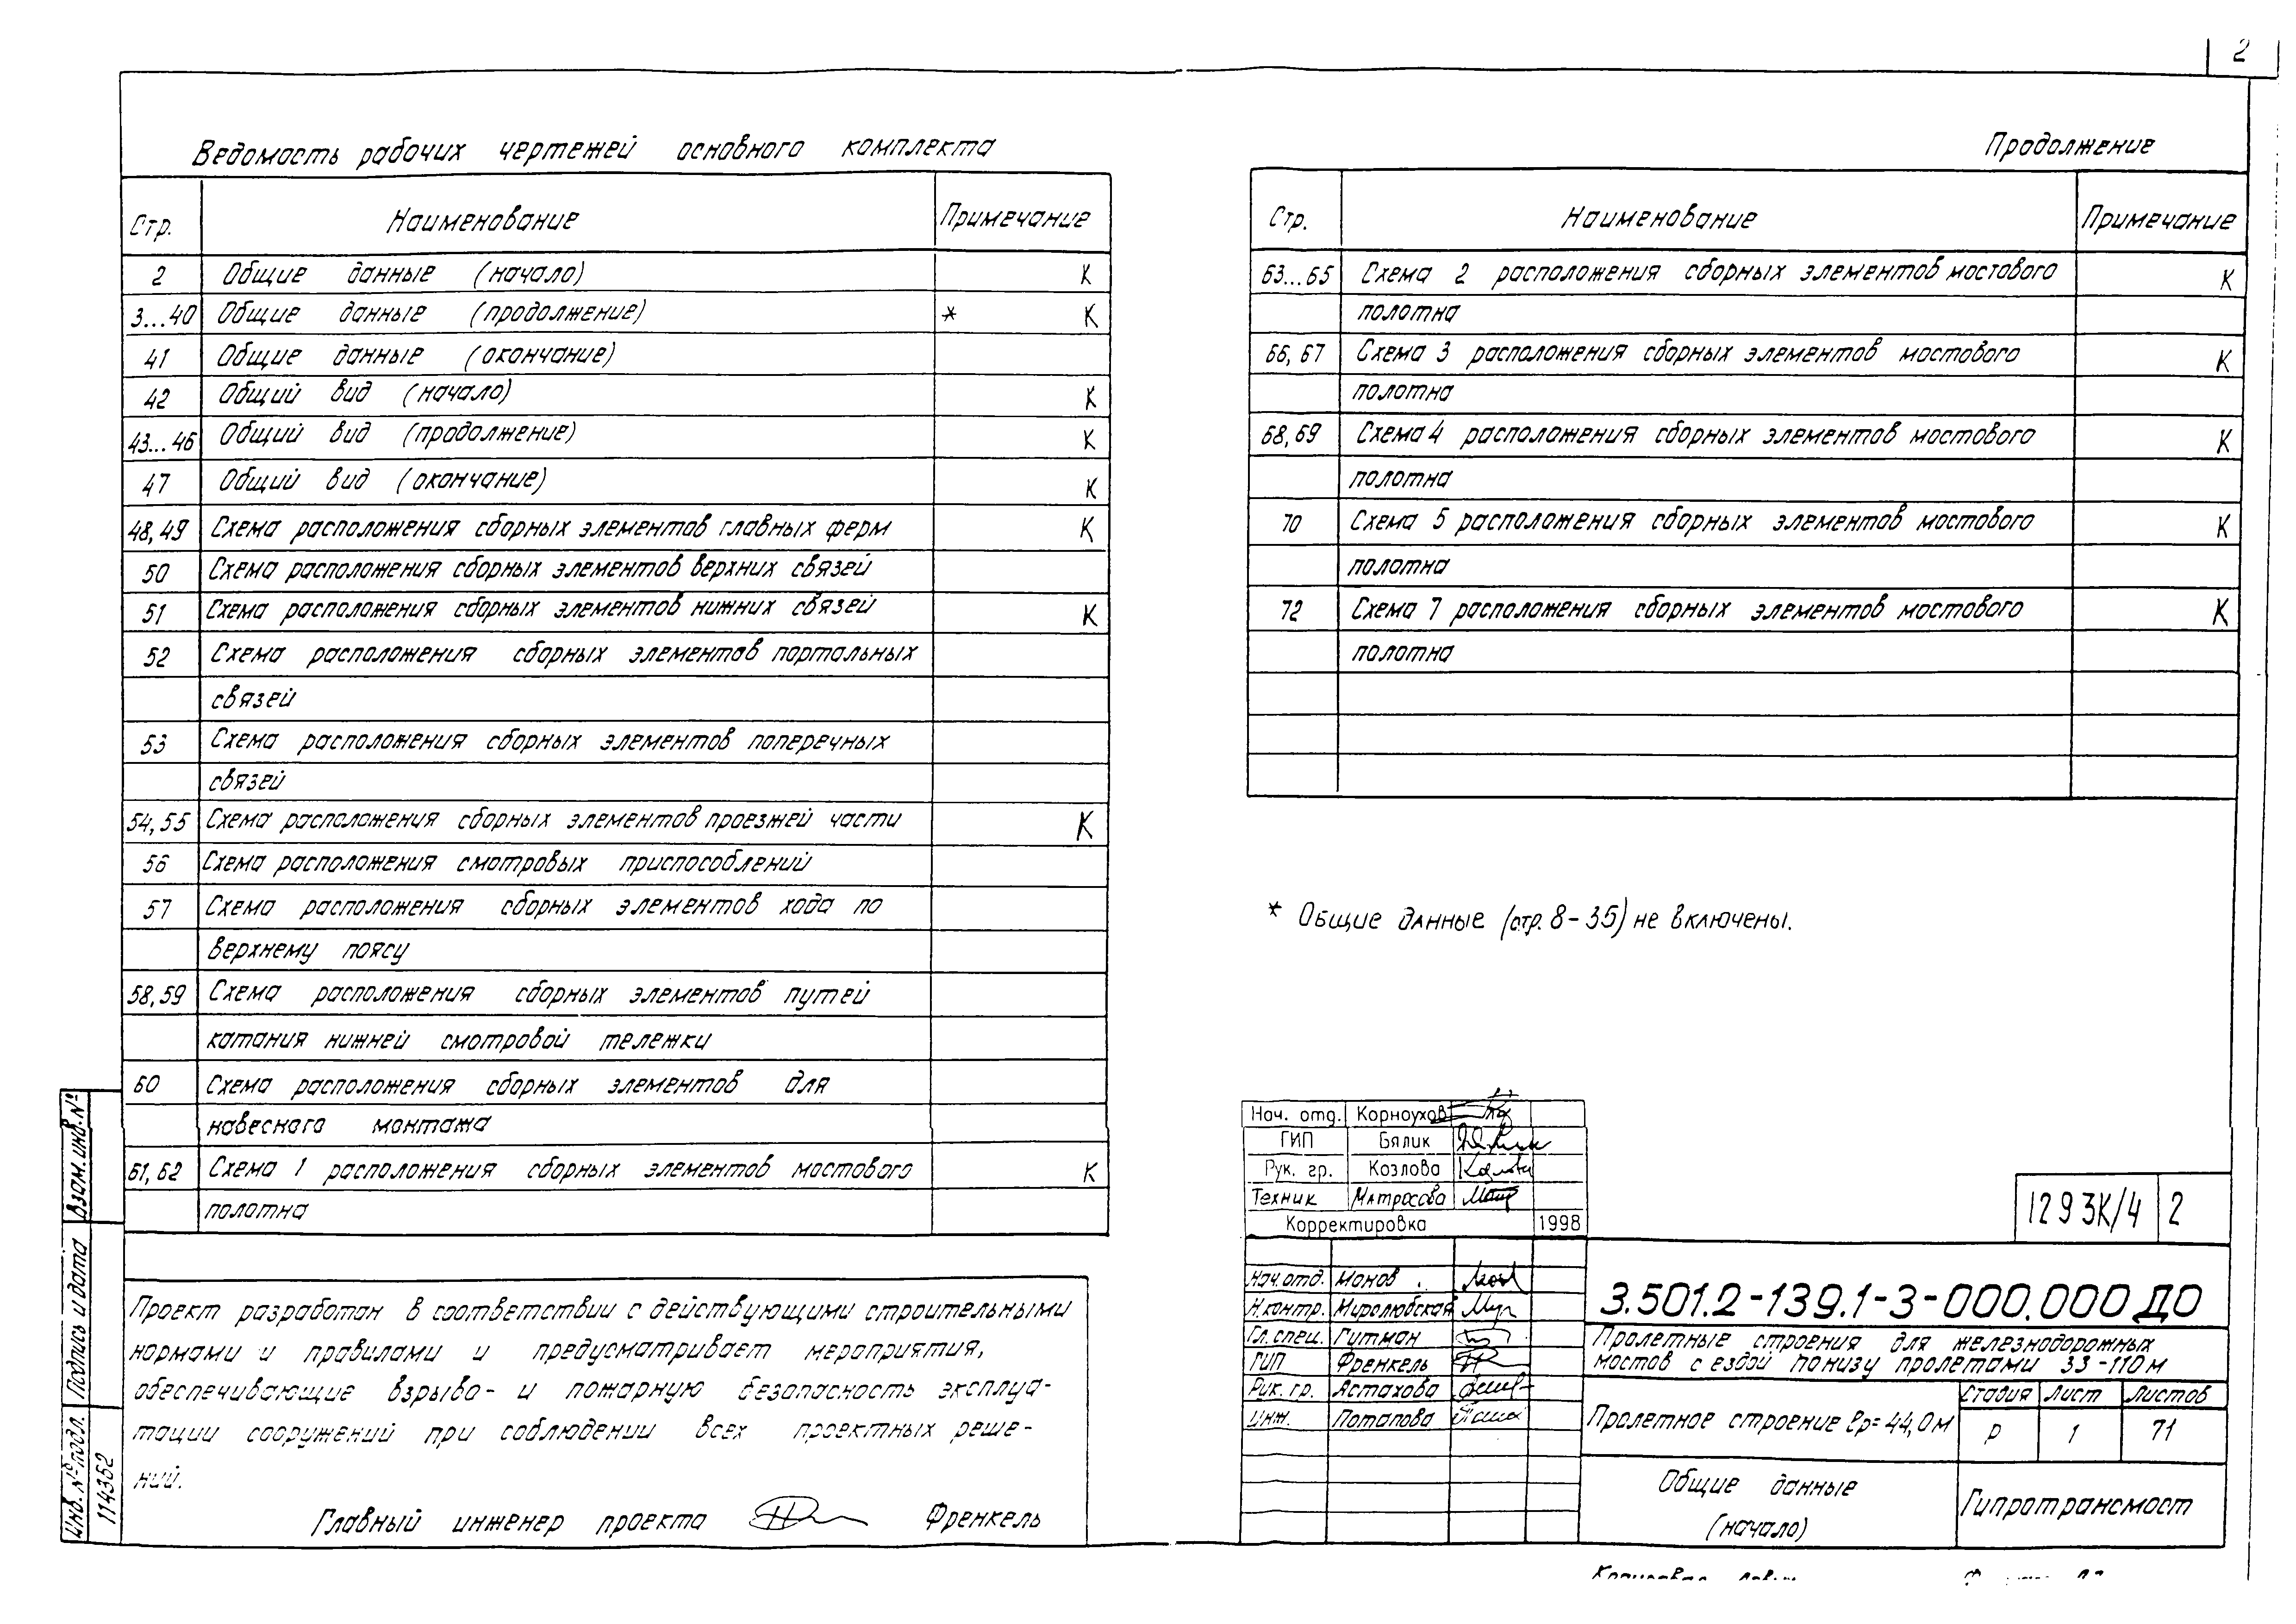 2
Ведомость рабочих чертежей основного комплекта
Стр. Наименование Примечание
2 Общие данные (начало) К
3...40 Общие данные (продолжение) * К
41 Общие данные (окончание)
42 Общий вид (начало) К
43...46 Общий вид (продолжение) К
47 Общий вид (окончание) К
48,49 Схема расположения сборных элементов главных ферм К
50 Схема расположения сборных элементов верхних связей
51 Схема расположения сборных элементов нижних связей К
52 Схема расположения сборных элементов портальных
связей
53 Схема расположения сборных элементов поперечных
связей
54,55 Схема расположения сборных элементов проезжей части К
56 Схема расположения смотровых приспособлений
57 Схема расположения сборных элементов хода по
верхнему поясу
58,59 Схема расположения сборных элементов путей
катания нижней смотровой тележки
60 Схема расположения сборных элементов для
навесного монтажа
61,62 Схема 1 расположения сборных элементов мостового К
полотна
Проект разработан в соответствии с действующими строительными
нормами и правилами и предусматривает мероприятия,
обеспечивающие взрыво- и пожарную безопасность эксплуа-
тации сооружений при соблюдении всех проектных реше-
ний.
Главный инженер проекта Френкель
Взам.инв.№
Подпись и дата
Инв.№подл. 114352
Продолжение
Стр. Наименование Примечание
63...65 Схема 2 расположения сборных элементов мостового К
полотна
66, 67 Схема 3 расположения сборных элементов мостового К
полотна
68,69 Схема 4 расположения сборных элементов мостового К
полотна
70 Схема 5 расположения сборных элементов мостового К
полотна
72 Схема 7 расположения сборных элементов мостового К
полотна
* Общие данные (стр. 8-35) не включены.
Нач. отд. Корноухов
ГИП Бялик
Рук. гр. Козлова
Техник Матросова
Корректировка 1998
1293К/4 2
Нач.отд. Монов
Н.контр. Миролюбская
Гл.спец. Гитман
ГИП Френкель
Рук. гр. Астахова
Инж. Потапова
3.501.2-139.1-3-000.000 ДО
Пролетные строения для железнодорожных
мостов с ездой понизу пролетами 33-110 м
Пролетное строение ℓр= 44,0м
Стадия Лист Листов
Р 1 71
Общие данные
(начало)
Гипротрансмост